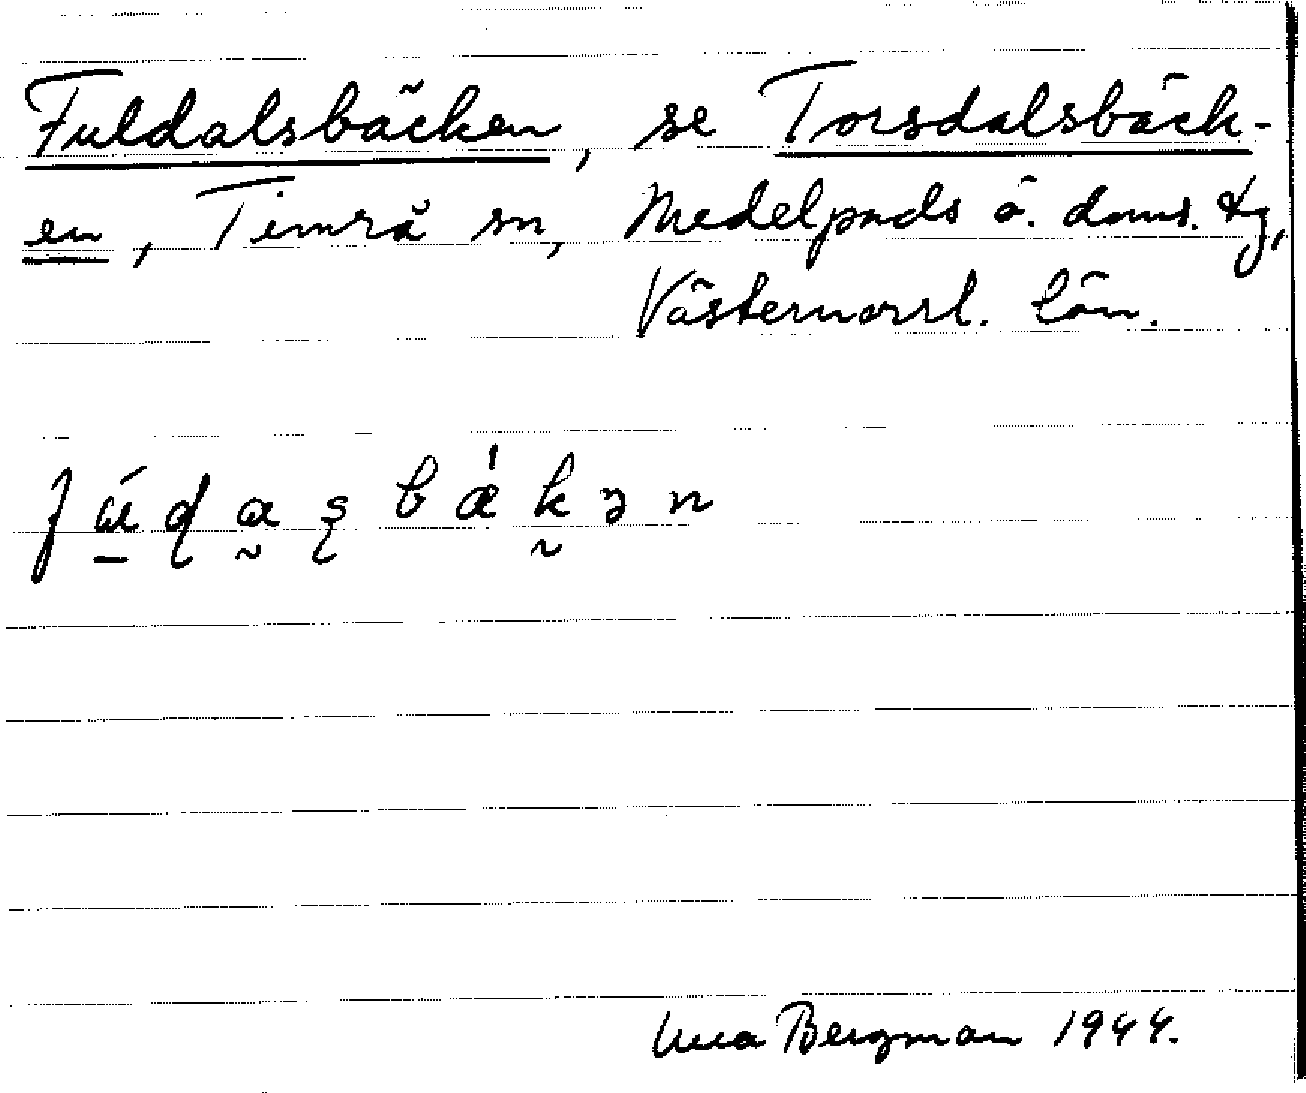 Fuldalsbäcken, se Torsdalsbäck-
en, Timrå sn, Medelpads ö. doms. tg,
Västernorrl. län.
bǽkən
Bergman 1944.